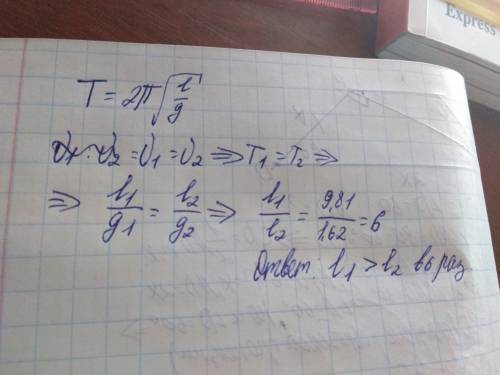 Express
T = 2π√(l/g)
ν₁ : ν₂ = ν₁ = ν₂ ⇒ T₁ = T₂ ⇒
⇒ l₁/g₁ = l₂/g₂ ⇒ l₁/l₂ = 9,81/1,62 = 6
Ответ: l₁ > l₂ в 6 раз